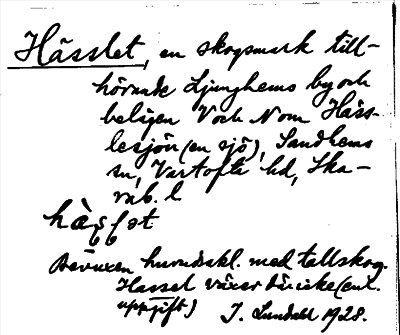 Hässlet, en skogsmark till-
hörande Ljunghems by och
belägen V och N om Häss-
lesjön (en sjö), Sandhems
sn, Vartofta hd, Ska-
rab. l
Bevuxen huvudsakl. med tallskog.
Hassel växer där icke (enl.
uppgift)
J. Lundahl 1928.